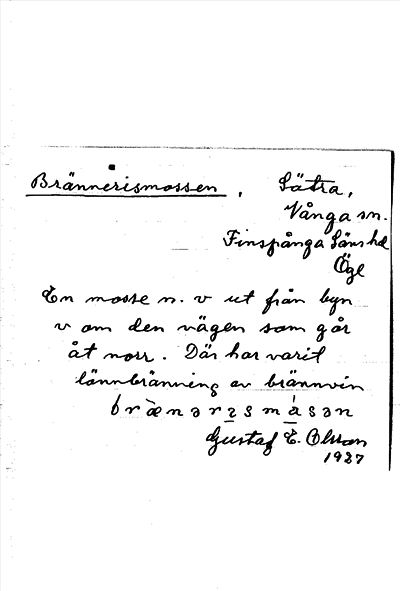 Brännerismossen, Sätra,
Vånga sn.
Finspånga läns hd
Ögl
En mosse n. v ut från byn
v om den vägen som går
åt norr. Där har varit
lönnbränning av brännvin
brænərəsmåsən
Gustaf E. Olsson
1927